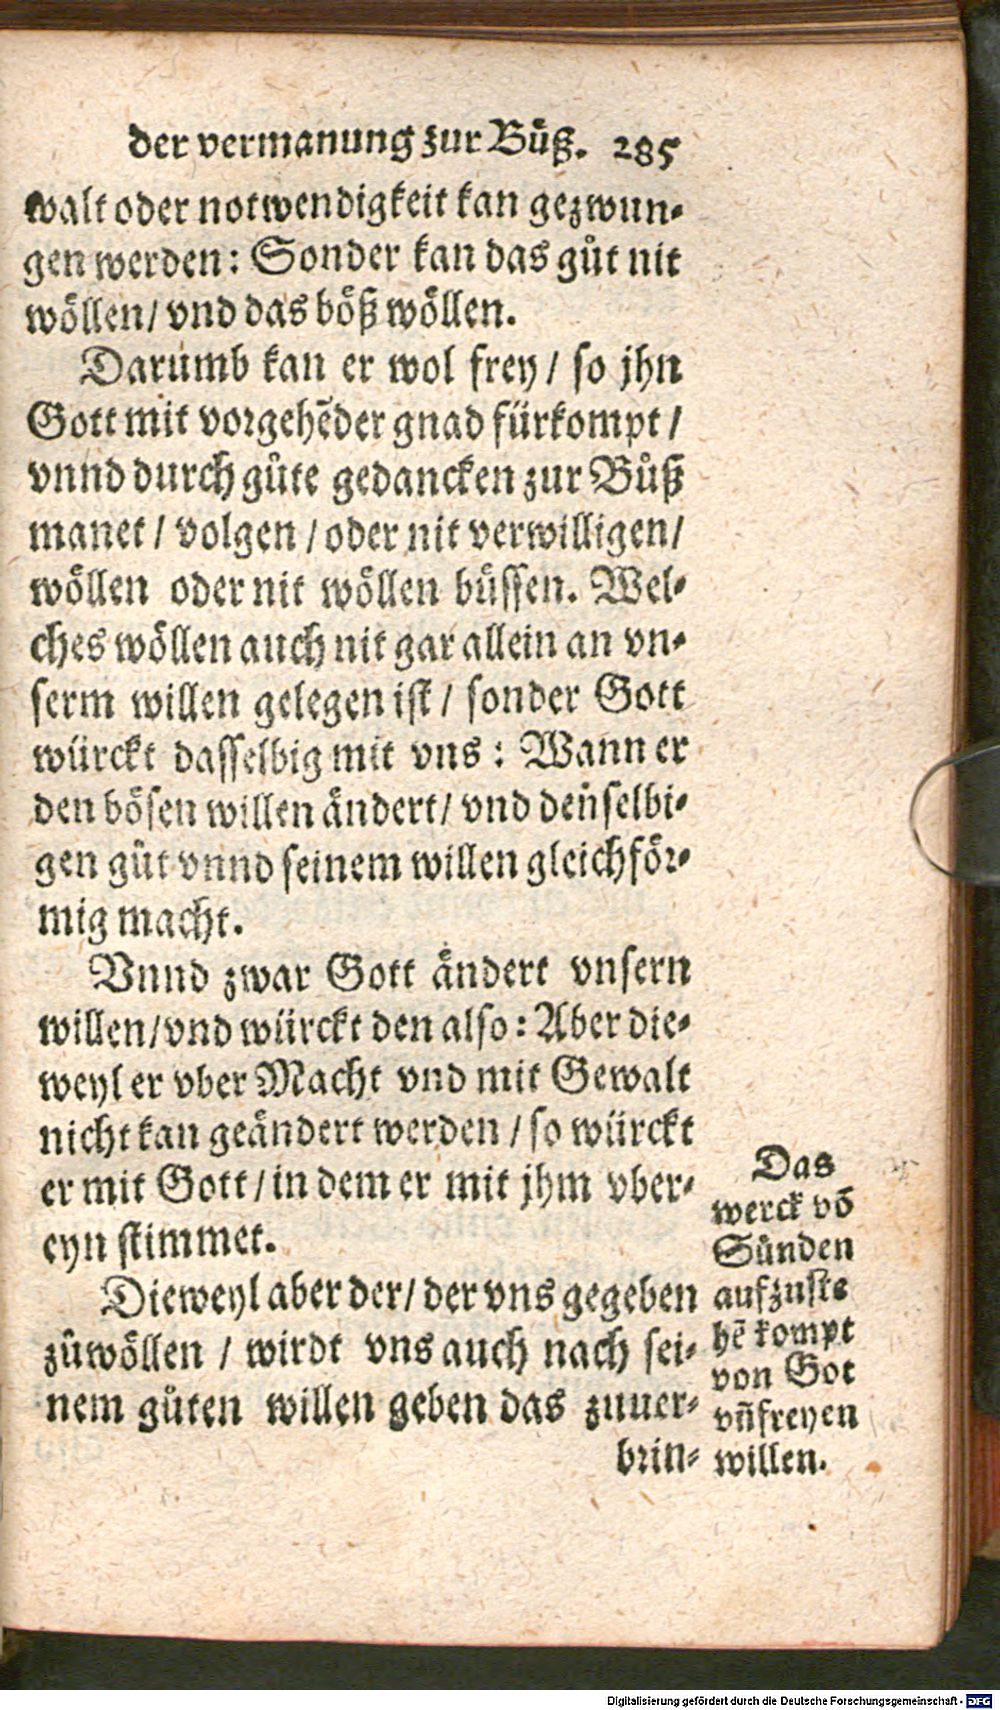 der vermanung zur Bůß. 285
walt oder notwendigkeit kan gezwun⸗
gen werden: Sonder kan das gůt nit
wöllen/ vnd das böß wöllen.
Darumb kan er wol frey / so jhn
Gott mit vorgehēder gnad fürkompt /
vnnd durch gůte gedancken zur Bůß
manet / volgen / oder nit verwilligen/
wöllen oder nit wöllen büssen. Wel⸗
ches wöllen auch nit gar allein an vn⸗
serm willen gelegen ist / sonder Gott
würckt dasselbig mit vns : Wann er
den bösen willen ändert/ vnd deñselbi⸗
gen gůt vnnd seinem willen gleichför⸗
mig macht.
Vnnd zwar Gott ändert vnsern
willen/vnd würckt den also: Aber die⸗
weyl er vber Macht vnd mit Gewalt
nicht kan geändert werden / so würckt
er mit Gott / in dem er mit jhm vber⸗
eyn stimmet.
Dieweyl aber der/ der vns gegeben
zůwöllen / wirdt vns auch nach sei⸗
nem gůten willen geben das zuuer⸗
brin⸗
Das
werck vō
Sünden
aufzuste
hē kompt
von Got
vñ freyen
willen.
Digitalisierung gefördert durch die Deutsche Forschungsgemeinschaft - DFG